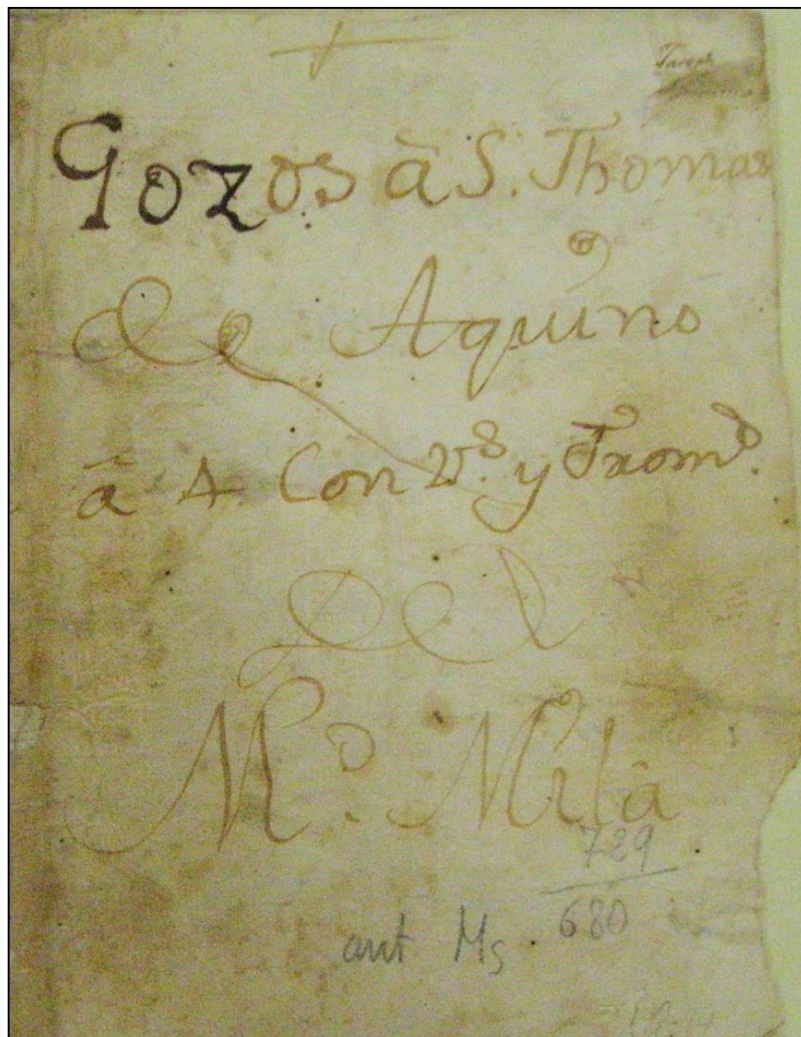 Gozos â S. Thomas
de Aquino
â 4 Con V.ˢ y Tromp.ˢ
Del
M.º Milâ
729
680
ant Ms